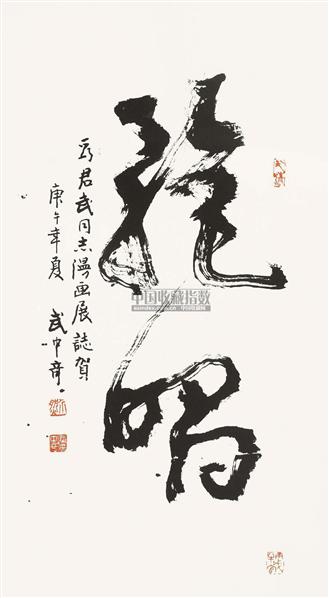 絕唱
为君武同志漫画展誌賀
庚午年夏
武中奇
中国收藏指数